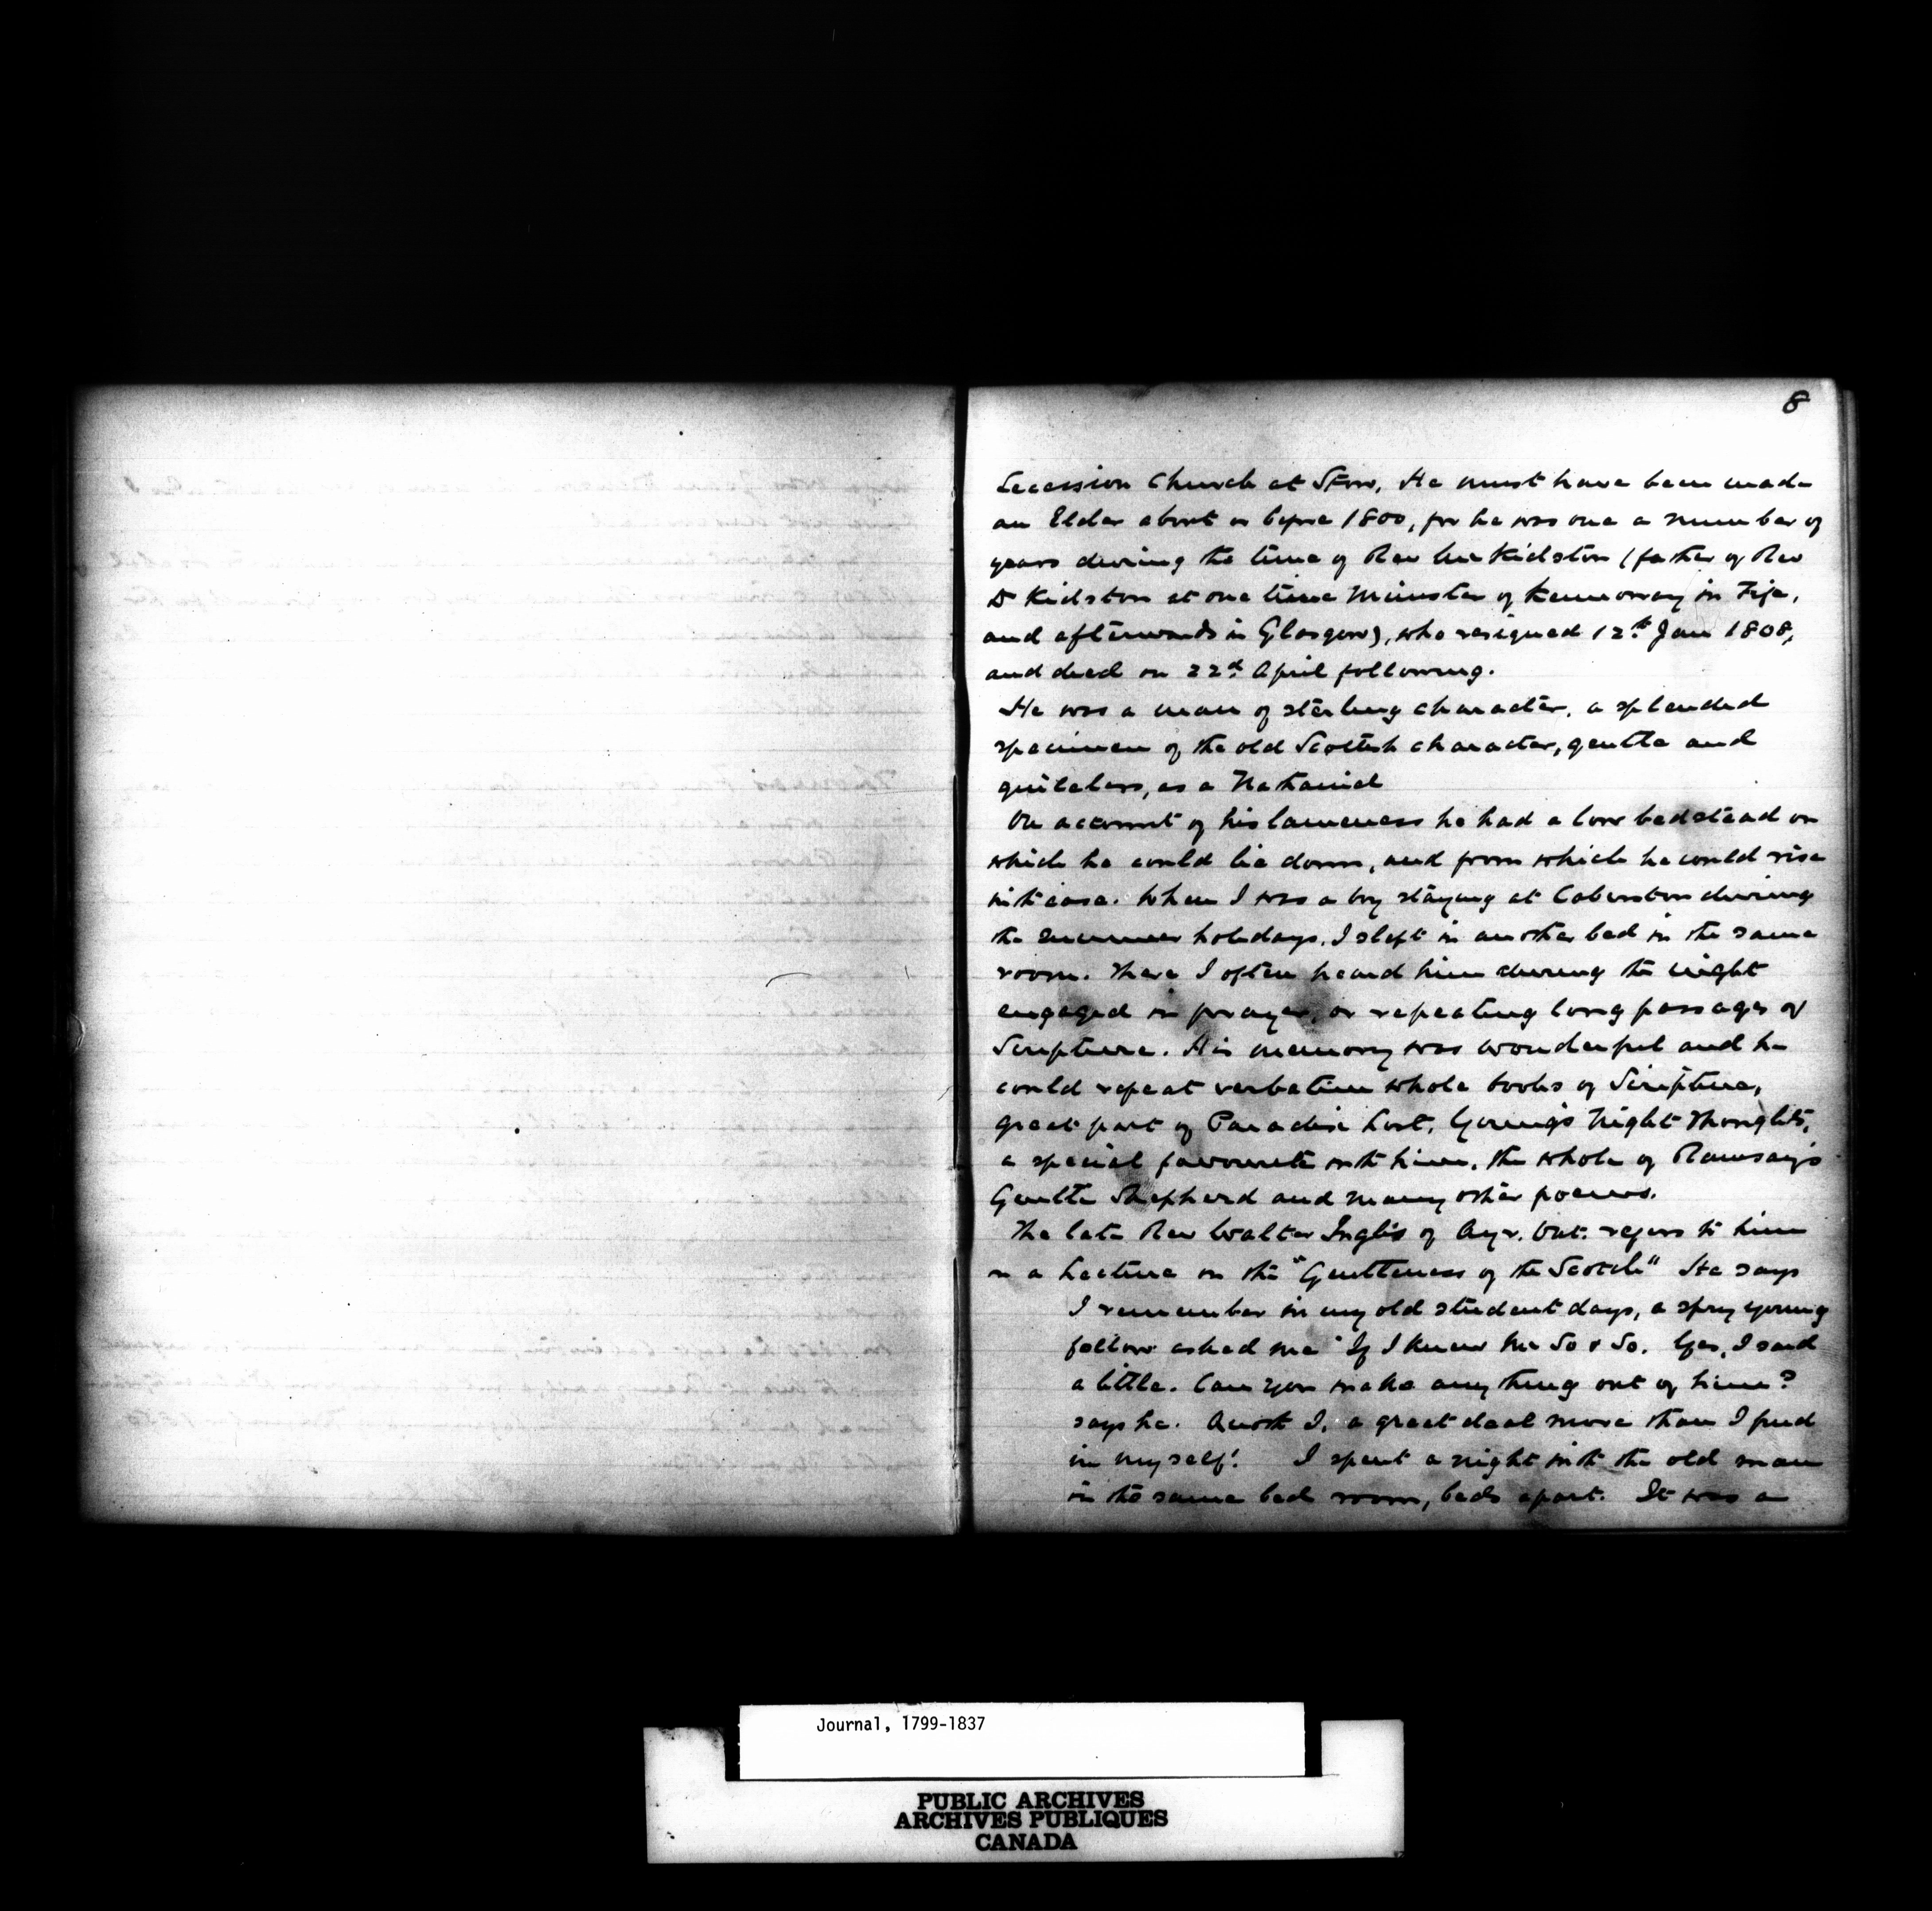 8
Secession Church at Stow. He must have been made
an Elder about or before 1800, for he was one a number of
years during the time of Rev Mr Kidston (father of Rev
Dr Kidston at one time Minister of Kennoway in Fife,
and afterwards in Glasgow), who resigned 12th Jan 1808,
and died on 22d April following.
He was a man of sterling character, a splended
specimen of the old Scottish character, gentle and
guileless, as a Nathaniel
On account of his lameness he had a low bedstead on
which he could lie down, and from which he could rise
with ease. When I was a boy staying at Caberston during
the summer holidays, I slept in another bed in the same
room. There I often heard him during the night
engaged in prayer, or repeating long passages of
Scripture. His memory was wonderful and he
could repeat verbatim whole books of Scripture,
great part of Paradise Lost, Young's Night Thoughts,
a special favourite with him, the whole of Ramsay's
Gentle Shepherd and many other poems.
The late Rev Walter Inglis of Ayr. Ont. refers to him
in a Lecture on the "Gentleness of the Scotch" He says
I remember in my old student days, a spry young
fellow asked me "If I knew Mr So & So. Yes, I said
a little. Can you make any thing out of him?
says he. Quoth I, a great deal more than I find
in myself! I spent a night with the old man
in the same bed room, beds apart. It was a
Journal, 1799-1837
PUBLIC ARCHIVES
ARCHIVES PUBLIQUES
CANADA